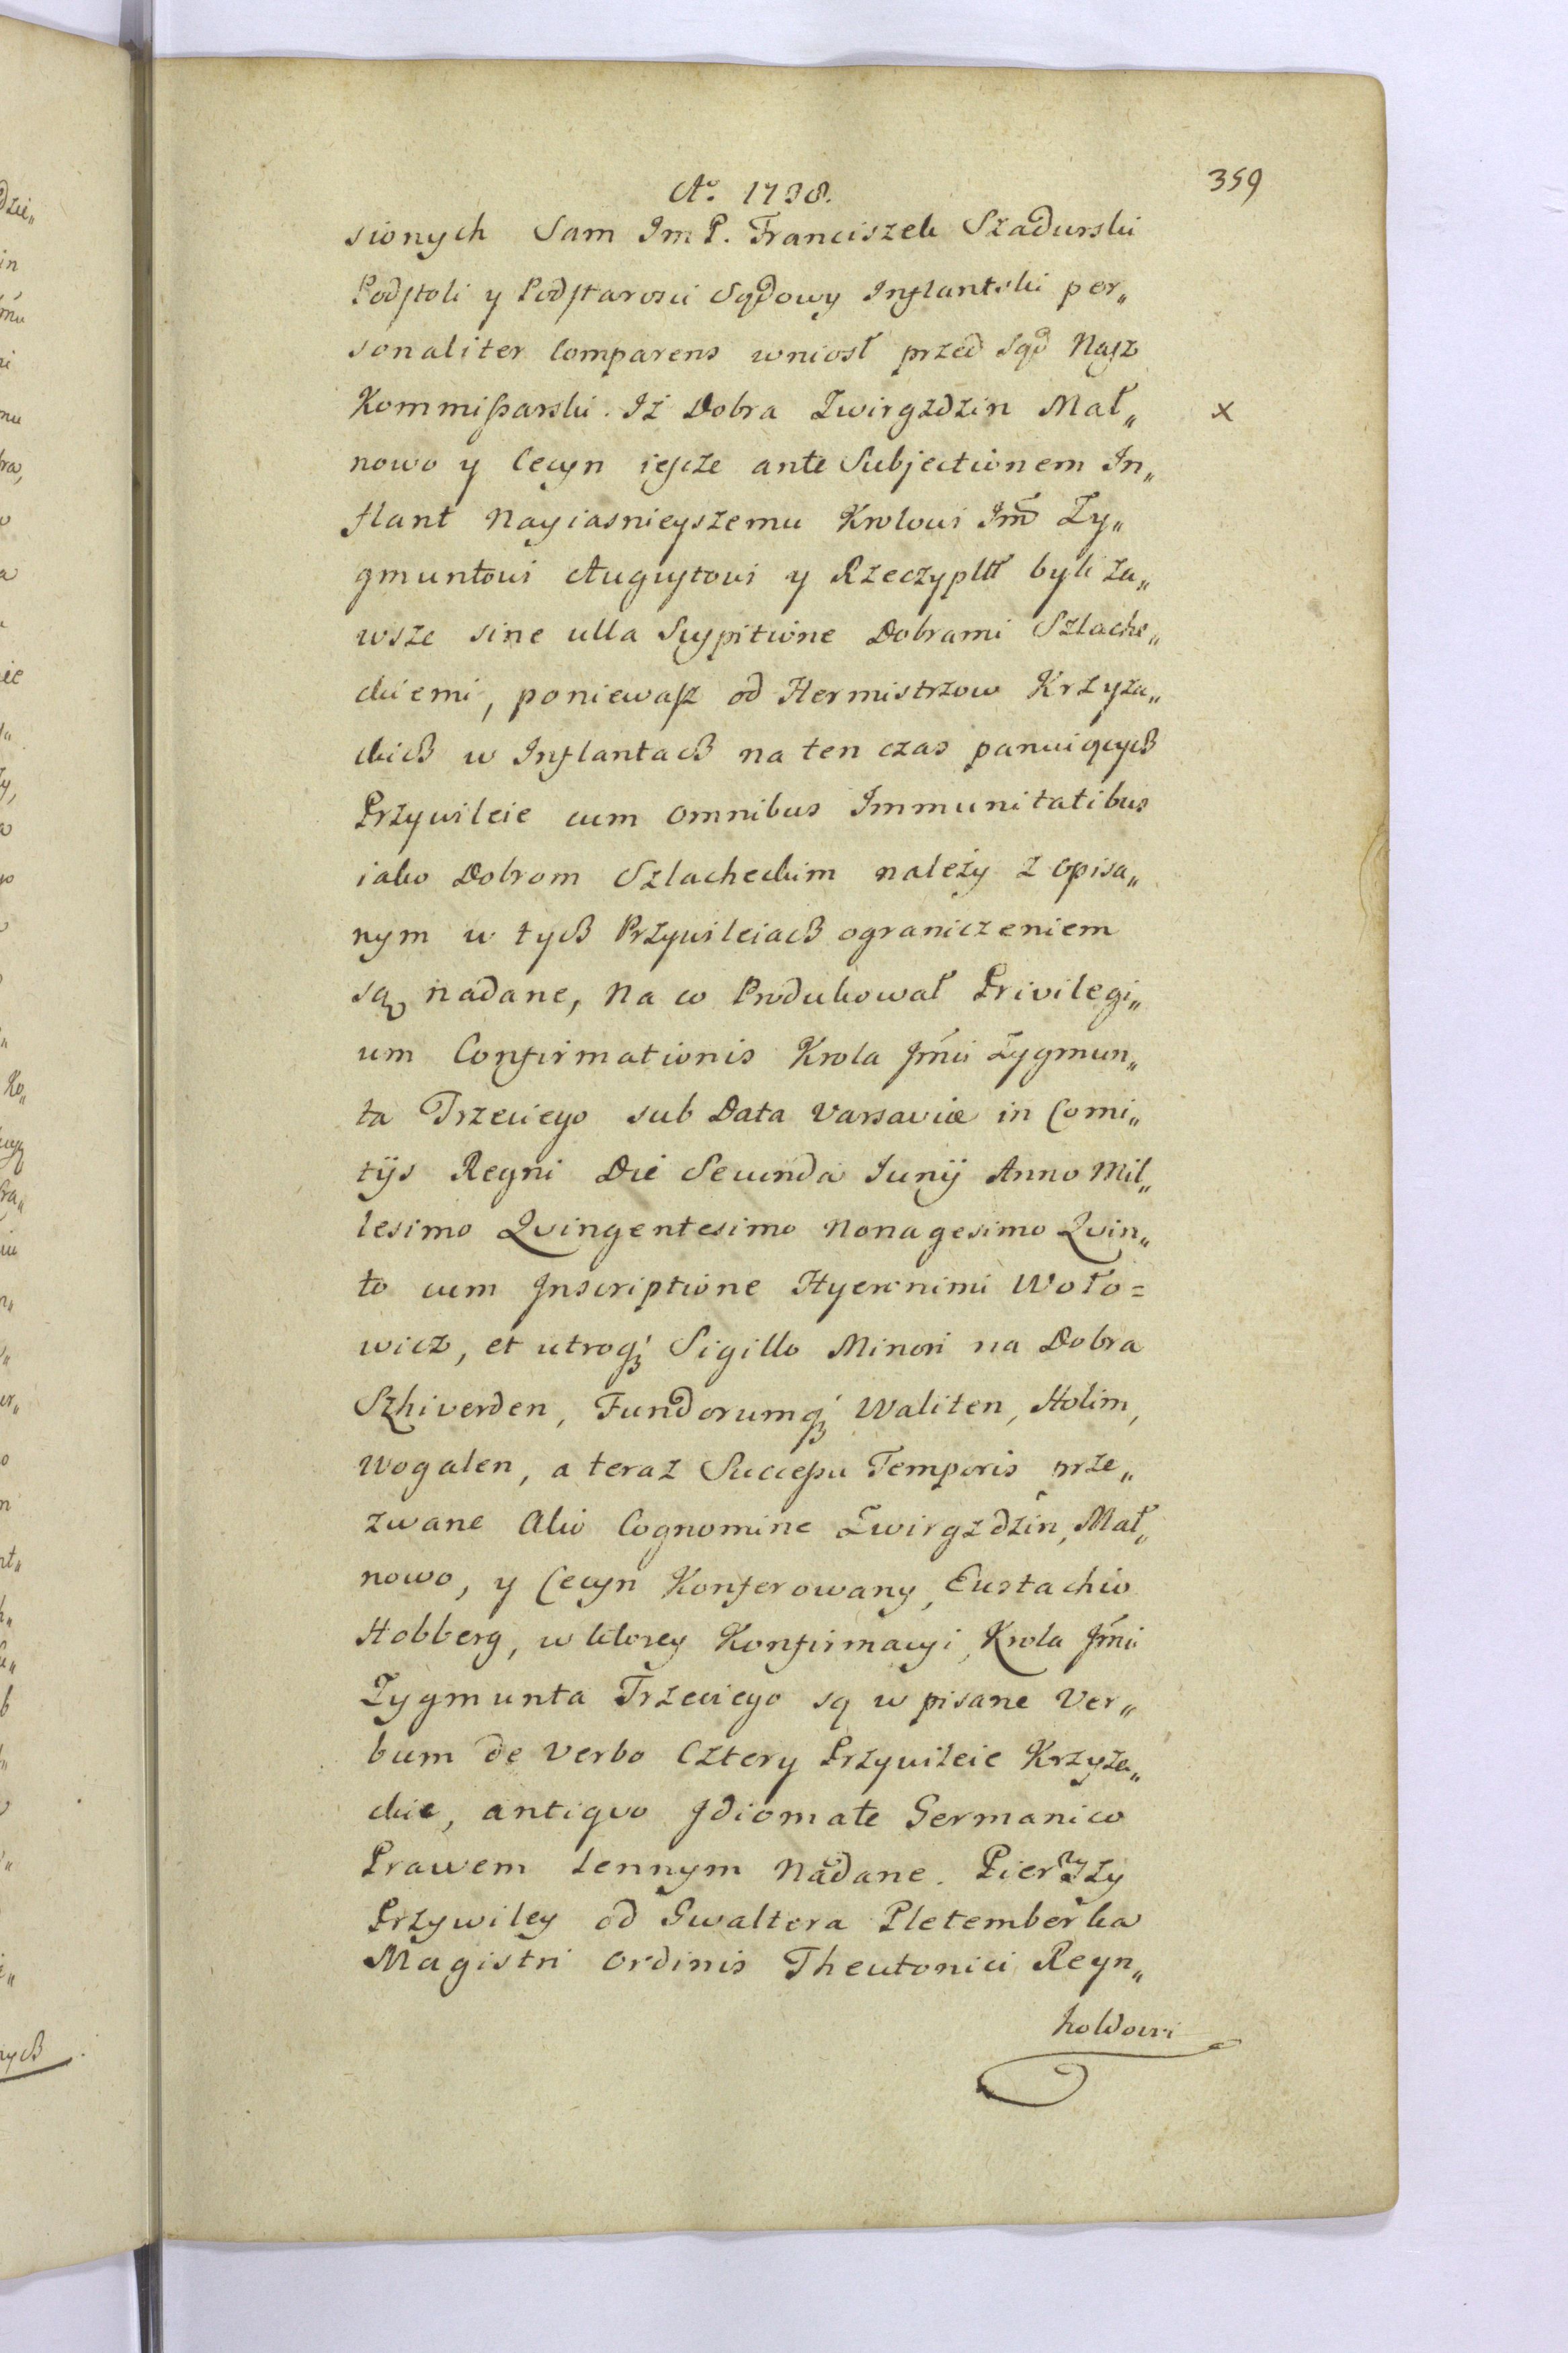 359
Aº. 1738.
sionych Sam Im P. Franciszek Szadurski
Podstoli y Podstarosci Sądowy Inflantski per„
sonaliter Comparens wniosł przed Sąd Nasz
Kommissarski. Iż Dobra Zwirgzdzin Mał„ x
nowo y Cecyn iescze ante Subjectionem In„
flant Nayiasnieyszemu Krolowi Jm̃ Zy„
gmuntowi Augustowi y Rzeczyplltt byli za„
wsze sine ulla Suspitione Dobrami Szlache„
ckiemi, poniewasz od Hermistrzow Krzyża„
ckich w Inflantach na ten czas panuiących
Przywileie cum omnibus Immunitatibus
iako Dobrom Szlacheckim należy z opisa„
nym w tych Przywileiach ograniczeniem
są nadane, Na co Produkował Privilegi„
um Confirmationis Krola Jmći Zygmun„
ta Trzeciego sub Data Varsaviæ in Comi„
tijs Regni Die Secunda Junij Anno Mil„
lesimo Qvingentesimo Nonagesimo Qvin„
to cum Inscriptione Hyeronimi Woło=
wicz, et utroq; Sigillo Minori na Dobra
Szhiverden, Fundorumq; Waliten, Holim,
Wogalen, a teraz Successu Temporis prze„
zwane Alio Cognomine Zwirgzdzin, Mał„
nowo, y Cecyn Konferowany, Eustachio
Hobberg, w ktorey Konfirmacyi, Krola Jmći
Zygmunta Trzeciego są w pisane Ver„
bum de Verbo Cztery Przywileie Krzyża„
ckie, antiqvo Idiomate Germanico
Prawem Lennym Nadane. Pierszy
Przywiley od Gwaltera Pletemberka
Magistri Ordinis Theutonici Reyn„
holdowi